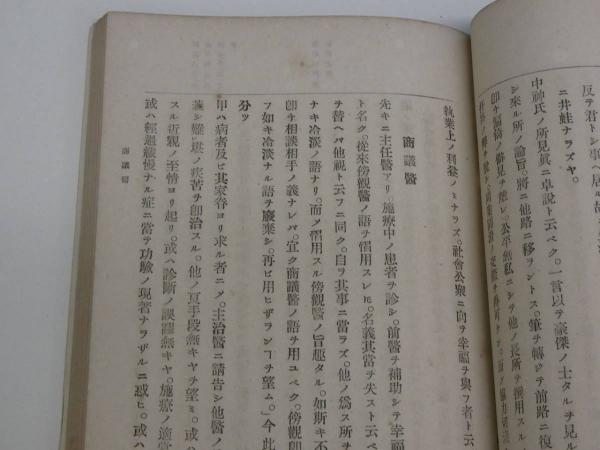 反テ君トシ事
ニ井蛙ナラズヤ。一言以テ豪傑ノ士タルヲ見ル
中神氏ノ所見眞ニ卓說ト云ベク。
シ來ル所ノ論旨。將ニ他路ニ移ラントス。筆ヲ轉ジテ前路ニ復
公平無私ニシテ他ノ長所ヲ採用スル
就業上ノ利益ノミナラズ。社會公衆ニ向テ幸福ヲ與フ者ト云
商議醫
先キニ主任醫アリ施療中ノ患者ヲ診シ。前醫ヲ補助シテ幸福
ト名ク。從來傍觀醫ノ語ヲ慣用スレ𪜈。名義其當ヲ失スト云ベ
ヲ替ヘバ他視ト云フニ同ク。自ヲ其事ニ當ラズ。他ノ爲ス所ヲ
ナキ冷淡ノ語ナリ。而メ慣用スル傍觀醫ノ旨趣タル。如斯キ不
卽チ相談相手ノ義ナレバ。宜ク商議醫ノ語ヲ用ユベク。傍觀卽
フ如キ冷淡ナル語ヲ廢棄シ。再ビ用ヒザランヿヲ望ム。今此
分ツ
甲ハ病者及ビ其家眷ヨリ求ル者ニメ。主治醫ニ請告シ他醫ノ
シ難堪ノ疾苦ヲ卽治スル。他ノ亘手段無キヤヲ望ミ。或ハ
スル祈親ノ至情ヨリ起リ。或ハ診斷ノ誤謬無キヤ。施療ノ適當
或ハ經過緩慢ナル症ニ當テ功驗ノ現著ナラザルニ惑ヒ。或ハ
商議醫